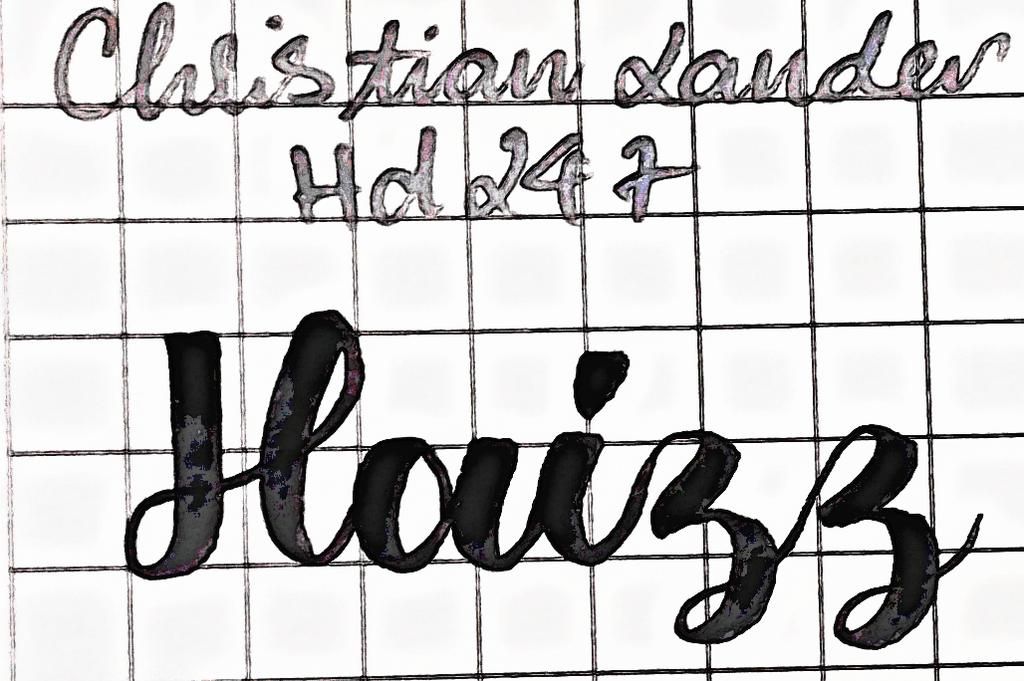 Christian Xander
Hd 247
Haizz